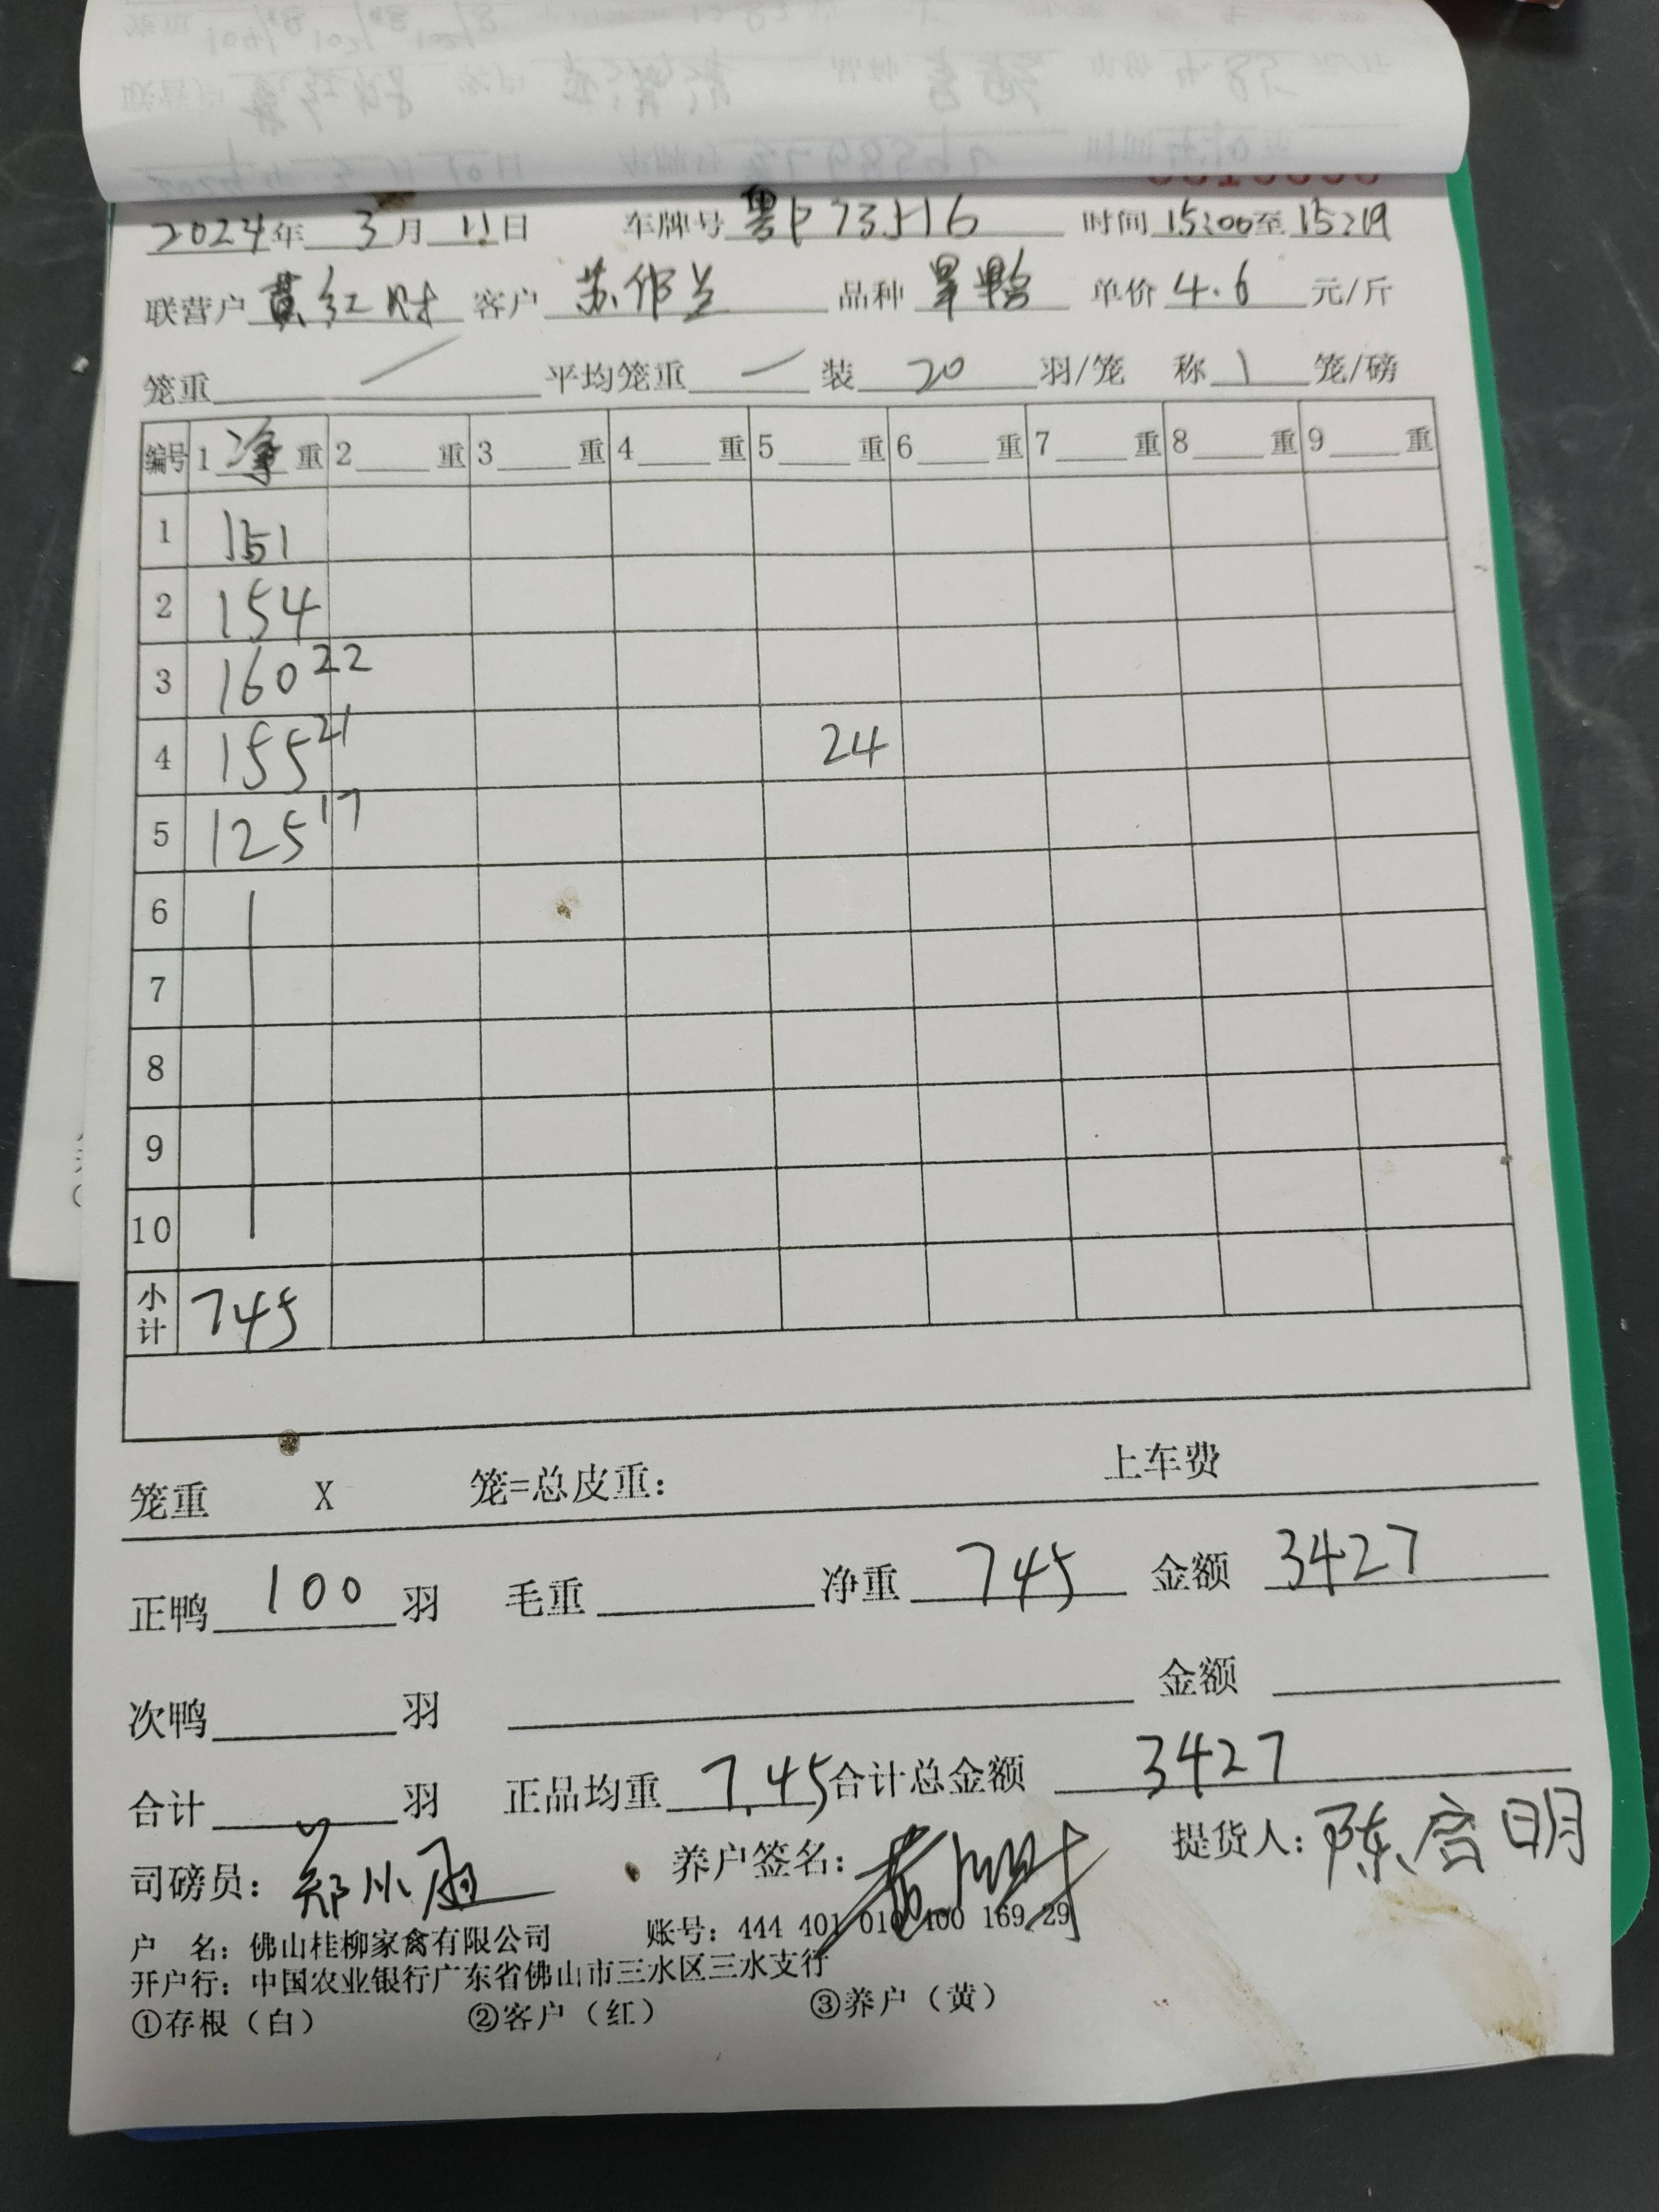 2024年 3月 11日 车牌号 粤 73H16 时间 15:00至 15:19
联营户 黄红财 客户 苏作兰 品种 旱鸭 单价 4.6 元/斤
笼重 / 平均笼重 / 装 20 羽/笼 称 1 笼/磅
编号 1 净 重 2 重 3 重 4 重 5 重 6 重 7 重 8 重 9 重
1 151
2 154
3 160 22
4 155 21 24
5 125 17
6
7
8
9
10
小计 745
笼重 X 笼=总皮重: 上车费
正鸭 100 羽 毛重 净重 745 金额 3427
次鸭 羽 金额
合计 羽 正品均重 7.45 合计总金额 3427
司磅员: 郑小雨 养户签名: 提货人: 陈启明
户 名: 佛山桂柳家禽有限公司 账号: 444 401 010 400 169 29
开户行: 中国农业银行广东省佛山市三水区三水支行
①存根（白） ②客户（红） ③养户（黄）